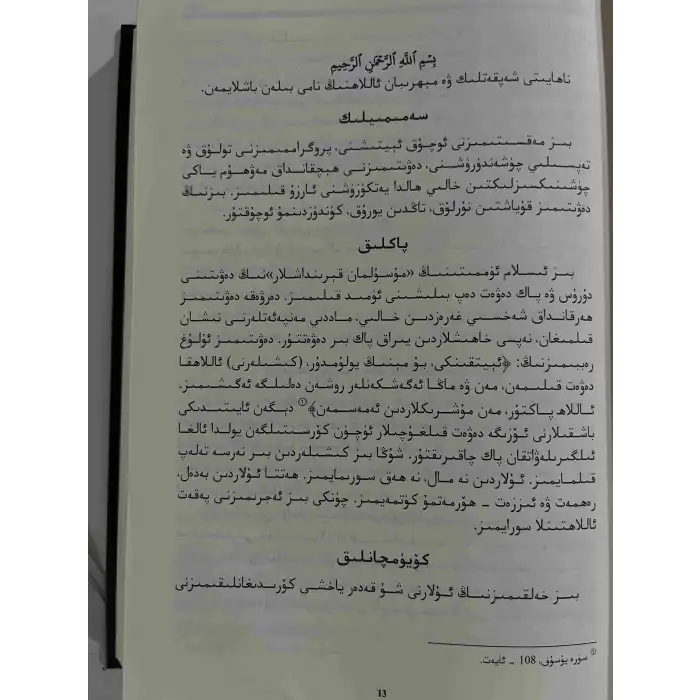 بِسْمِ اللَّهِ الرَّحْمَنِ الرَّحِيمِ
ناھايىتى شەپقەتلىك ۋە مېھرىبان ئاللاھنىڭ نامى بىلەن باشلايمەن.
سەمىمىيلىك
بىز مەقسىتىمىزنى ئوچۇق ئېيتىشنى، پروگراممىمىزنى تولۇق ۋە
تەپسىلىي چۈشەندۈرۈشنى، دەۋىتىمىزنى ھېچقانداق مەۋھۇم ياكى
چۈشىنىكسىزلىكتىن خالىي ھالدا يەتكۈزۈشنى ئارزۇ قىلىمىز. بىزنىڭ
دەۋىتىمىز قۇياشتىن نۇرلۇق، تاڭدىن يورۇق، كۈندۈزدىنمۇ ئوچۇقتۇر.
پاكلىق
بىز ئىسلام ئۈممىتىنىڭ «مۇسۇلمان قېرىنداشلار»نىڭ دەۋىتىنى
دۇرۇس ۋە پاك دەۋەت دەپ بىلىشىنى ئۈمىد قىلىمىز. دەرۋەقە دەۋىتىمىز
ھەرقانداق شەخسىي غەرەزدىن خالىي، ماددىي مەنپەئەتلەرنى نىشان
قىلمىغان، نەپسى خاھىشلاردىن يىراق پاك بىر دەۋەتتۇر. دەۋىتىمىز ئۇلۇغ
رەببىمىزنىڭ: ﴿ئېيتقىنكى، بۇ مېنىڭ يولۇمدۇر، (كىشىلەرنى) ئاللاھقا
دەۋەت قىلىمەن، مەن ۋە ماڭا ئەگەشكەنلەر روشەن دەلىلگە ئەگىشىمىز.
ئاللاھ پاكتۇر، مەن مۇشرىكلاردىن ئەمەسمەن﴾① دېگەن ئايىتىدىكى
باشقىلارنى ئۆزىگە دەۋەت قىلغۇچىلار ئۈچۈن كۆرسىتىلگەن يولدا ئالغا
ئىلگىرىلەۋاتقان پاك چاقىرىقتۇر. شۇڭا بىز كىشىلەردىن بىر نەرسە تەلەپ
قىلمايمىز. ئۇلاردىن نە مال، نە ھەق سورىمايمىز. ھەتتا ئۇلاردىن بەدەل،
رەھمەت ۋە ئىززەت - ھۆرمەتمۇ كۈتمەيمىز. چۈنكى بىز ئەجرىمىزنى پەقەت
ئاللاھتىنلا سورايمىز.
كۆيۈمچانلىق
بىز خەلقىمىزنىڭ ئۇلارنى شۇ قەدەر ياخشى كۆرىدىغانلىقىمىزنى
① سۈرە يۈسۈف، 108 - ئايەت.
13